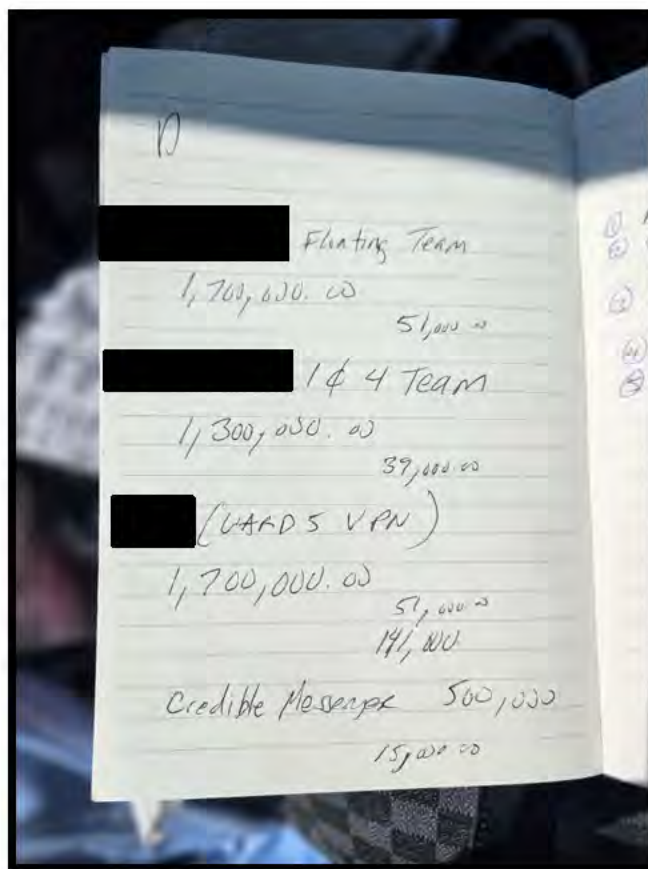 D
Floating Team
1,700,000.00
51,000.00
1 & 4 Team
1,300,000.00
39,000.00
(WARD 5 VPN)
1,700,000.00
51,000.00
141,000.
Credible Messenger 500,000
15,000.00
(1)
(2)
(3)
(4)
(5)